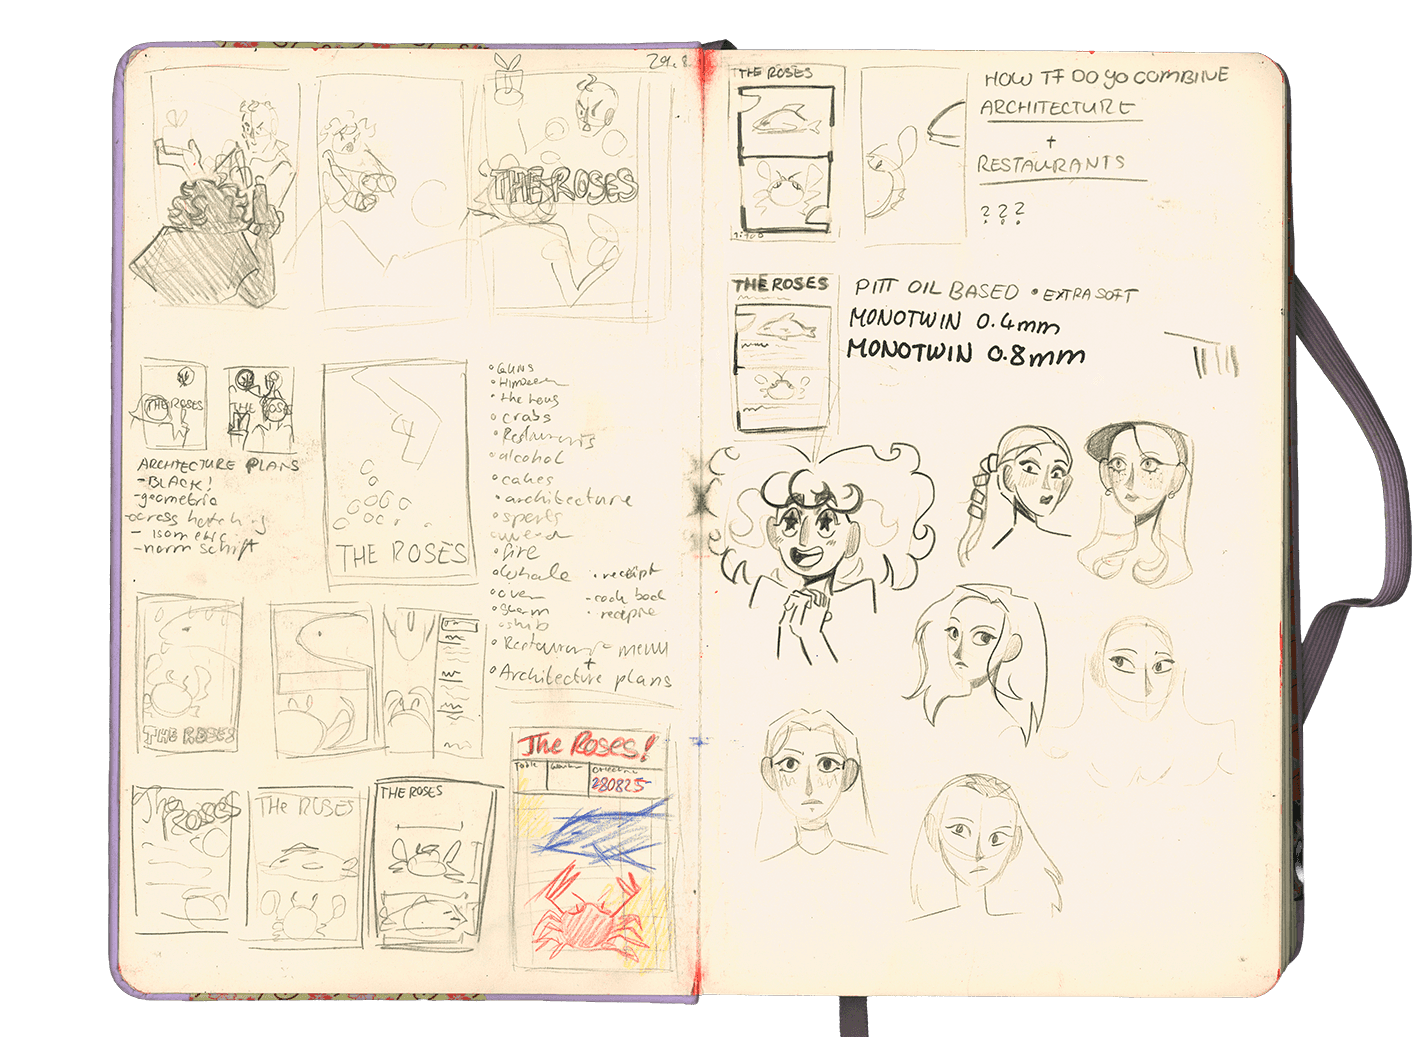 29.8
THE ROSES
THE ROSES
THE ROSES
ARCHITECTURE PLANS
-BLACK!
-geometric
-cross hatching
- isometric
-norm schrift
THE ROSES
• Guns
• the Lens
• crabs
• Restaurants
• alcohol
• cakes
• architecture
• sports
• fire
• Whale
• oven
• receipt
- cook book
• recipie
• Restaurant menu
+
• Architecture plans
THE ROSES
The Roses
THE ROSES
THE ROSES
The Roses!
Table
280825
THE ROSES
HOW TF DO YO COMBINE
ARCHITECTURE
+
RESTAURANTS
? ? ?
THE ROSES
PITT OIL BASED • EXTRA SOFT
MONOTWIN 0.4mm
MONOTWIN 0.8mm